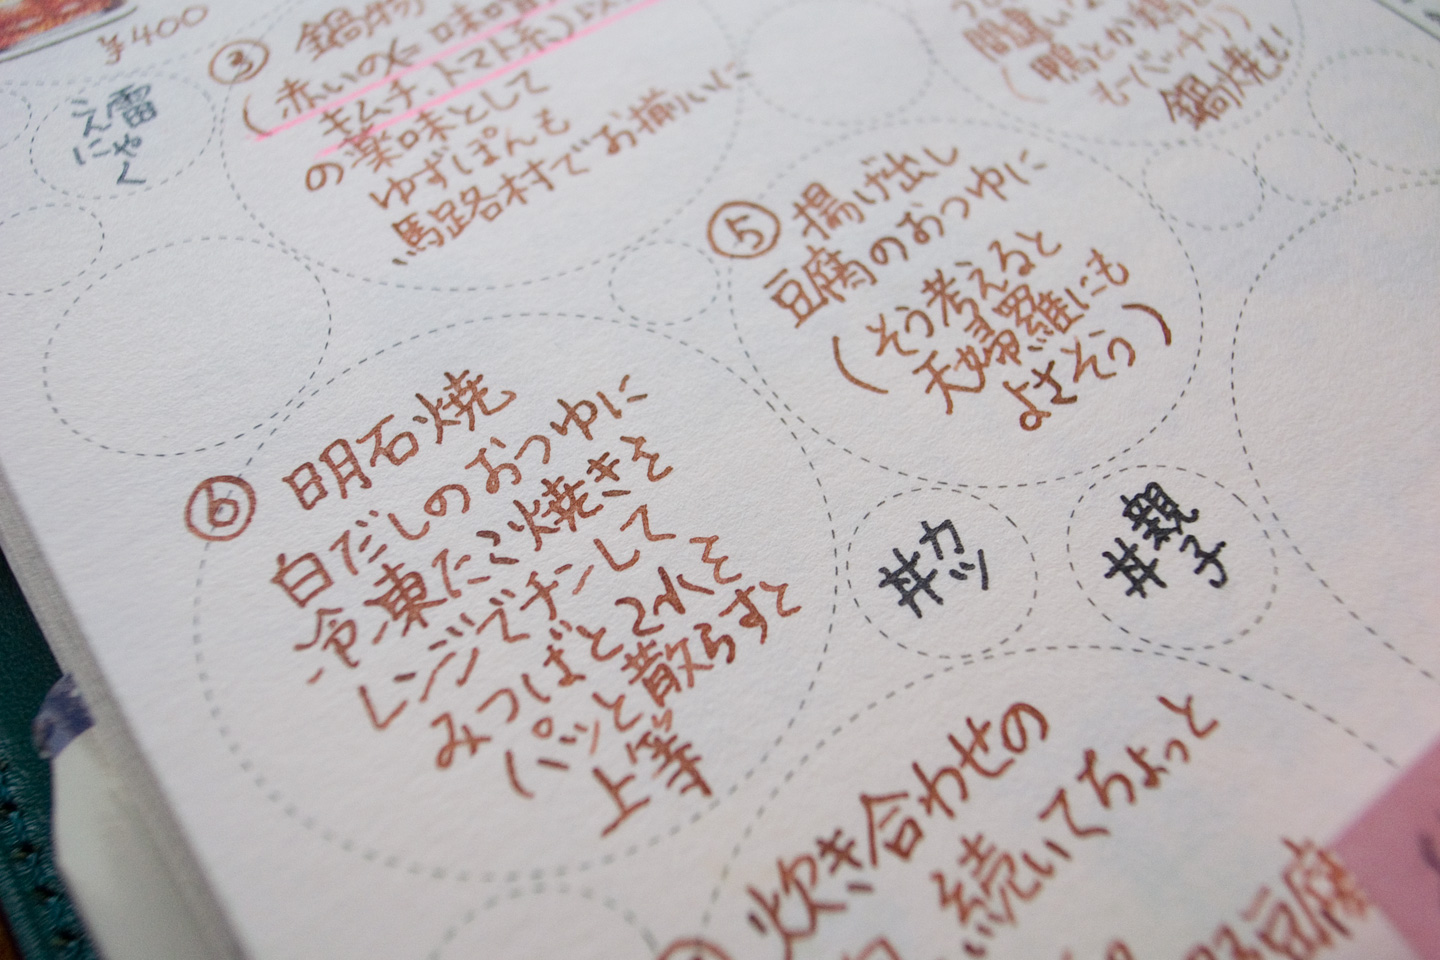 ¥400
雷
こんにゃく
③ 鍋物
(赤いの(=味噌
キムチ、トマト系)以
の薬味として
ゆずぽんも
馬路村でお揃いに
間違いな
(鴨とか鶏
鍋焼も!
⑤ 揚げ出し
豆腐のおつゆに
(そう考えると
天婦羅にも
よさそう)
⑥ 明石焼
白だしのおつゆに
冷凍たこ焼きを
レンジでチンして
みつばと2水を
パッと散らすと
上等
カツ
丼
親子
丼
炊き合わせの
続いてちょっと
豆腐